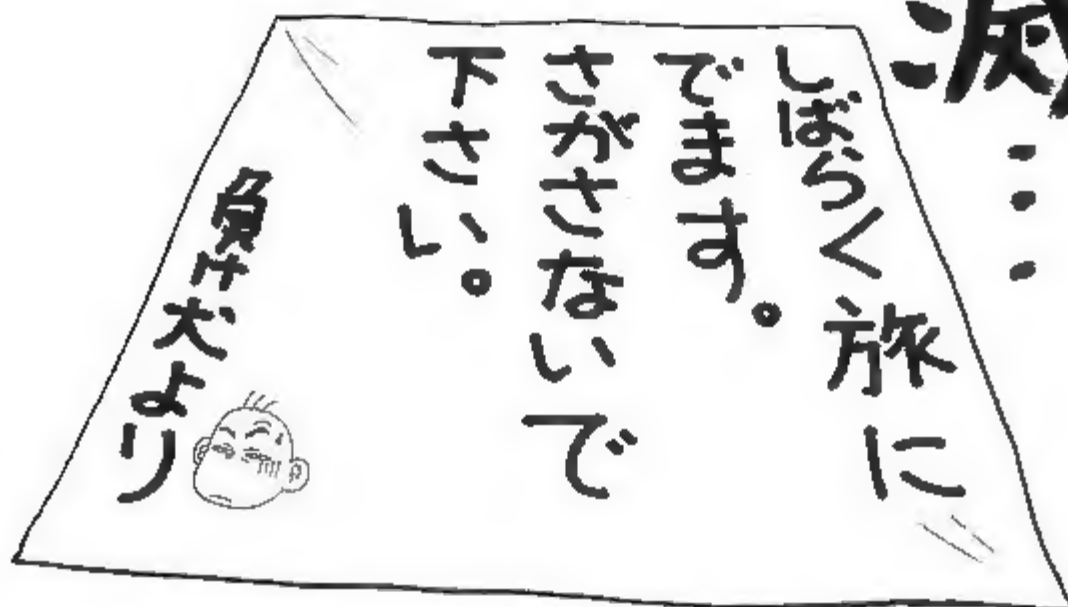 滅…
しばらく旅に
でます。
さがさないで
下さい。
負け犬より